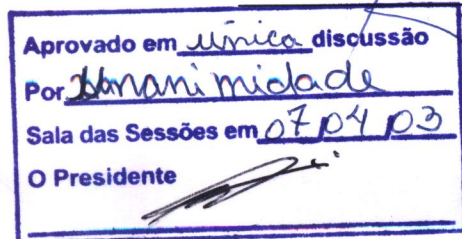 Aprovado em única discussão
Por Unanimidade
Sala das Sessões em 07/04/03
O Presidente